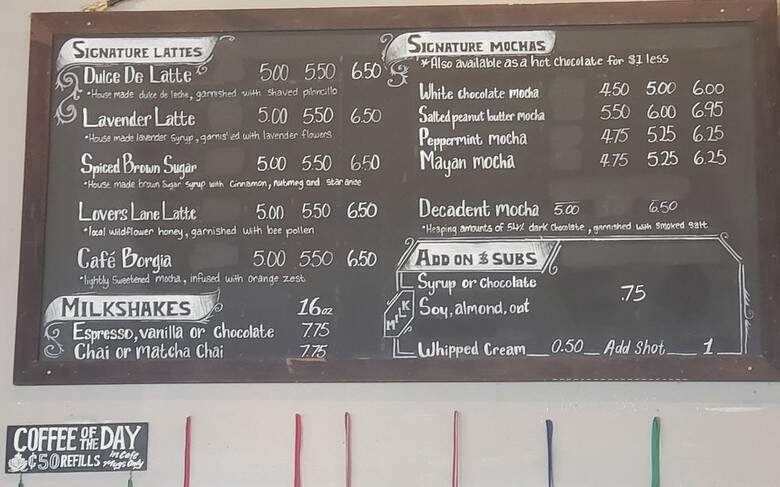 SIGNATURE LATTES
Dulce De Latte 5.00 5.50 6.50
*House made dulce de leche, garnished with shaved piloncillo
Lavender Latte 5.00 5.50 6.50
*House made lavender syrup, garnished with lavender flowers
Spiced Brown Sugar 5.00 5.50 6.50
*House made brown sugar syrup with cinnamon, nutmeg and star anise
Lovers Lane Latte 5.00 5.50 6.50
*local wildflower honey, garnished with bee pollen
Café Borgia 5.00 5.50 6.50
*lightly sweetened mocha, infused with orange zest
MILKSHAKES 16oz
Espresso, vanilla or chocolate 7.75
Chai or Matcha Chai 7.75
SIGNATURE MOCHAS
*Also available as a hot chocolate for $1 less
White chocolate mocha 4.50 5.00 6.00
Salted peanut butter mocha 5.50 6.00 6.95
Peppermint mocha 4.75 5.25 6.25
Mayan mocha 4.75 5.25 6.25
Decadent mocha 5.00 6.50
*Heaping amounts of 54% dark chocolate, garnished with smoked salt
ADD ON & SUBS
Syrup or Chocolate .75
MILK Soy, almond, oat
Whipped Cream 0.50 Add Shot 1
COFFEE OF THE DAY
¢50 REFILLS in Cafe Mugs Only